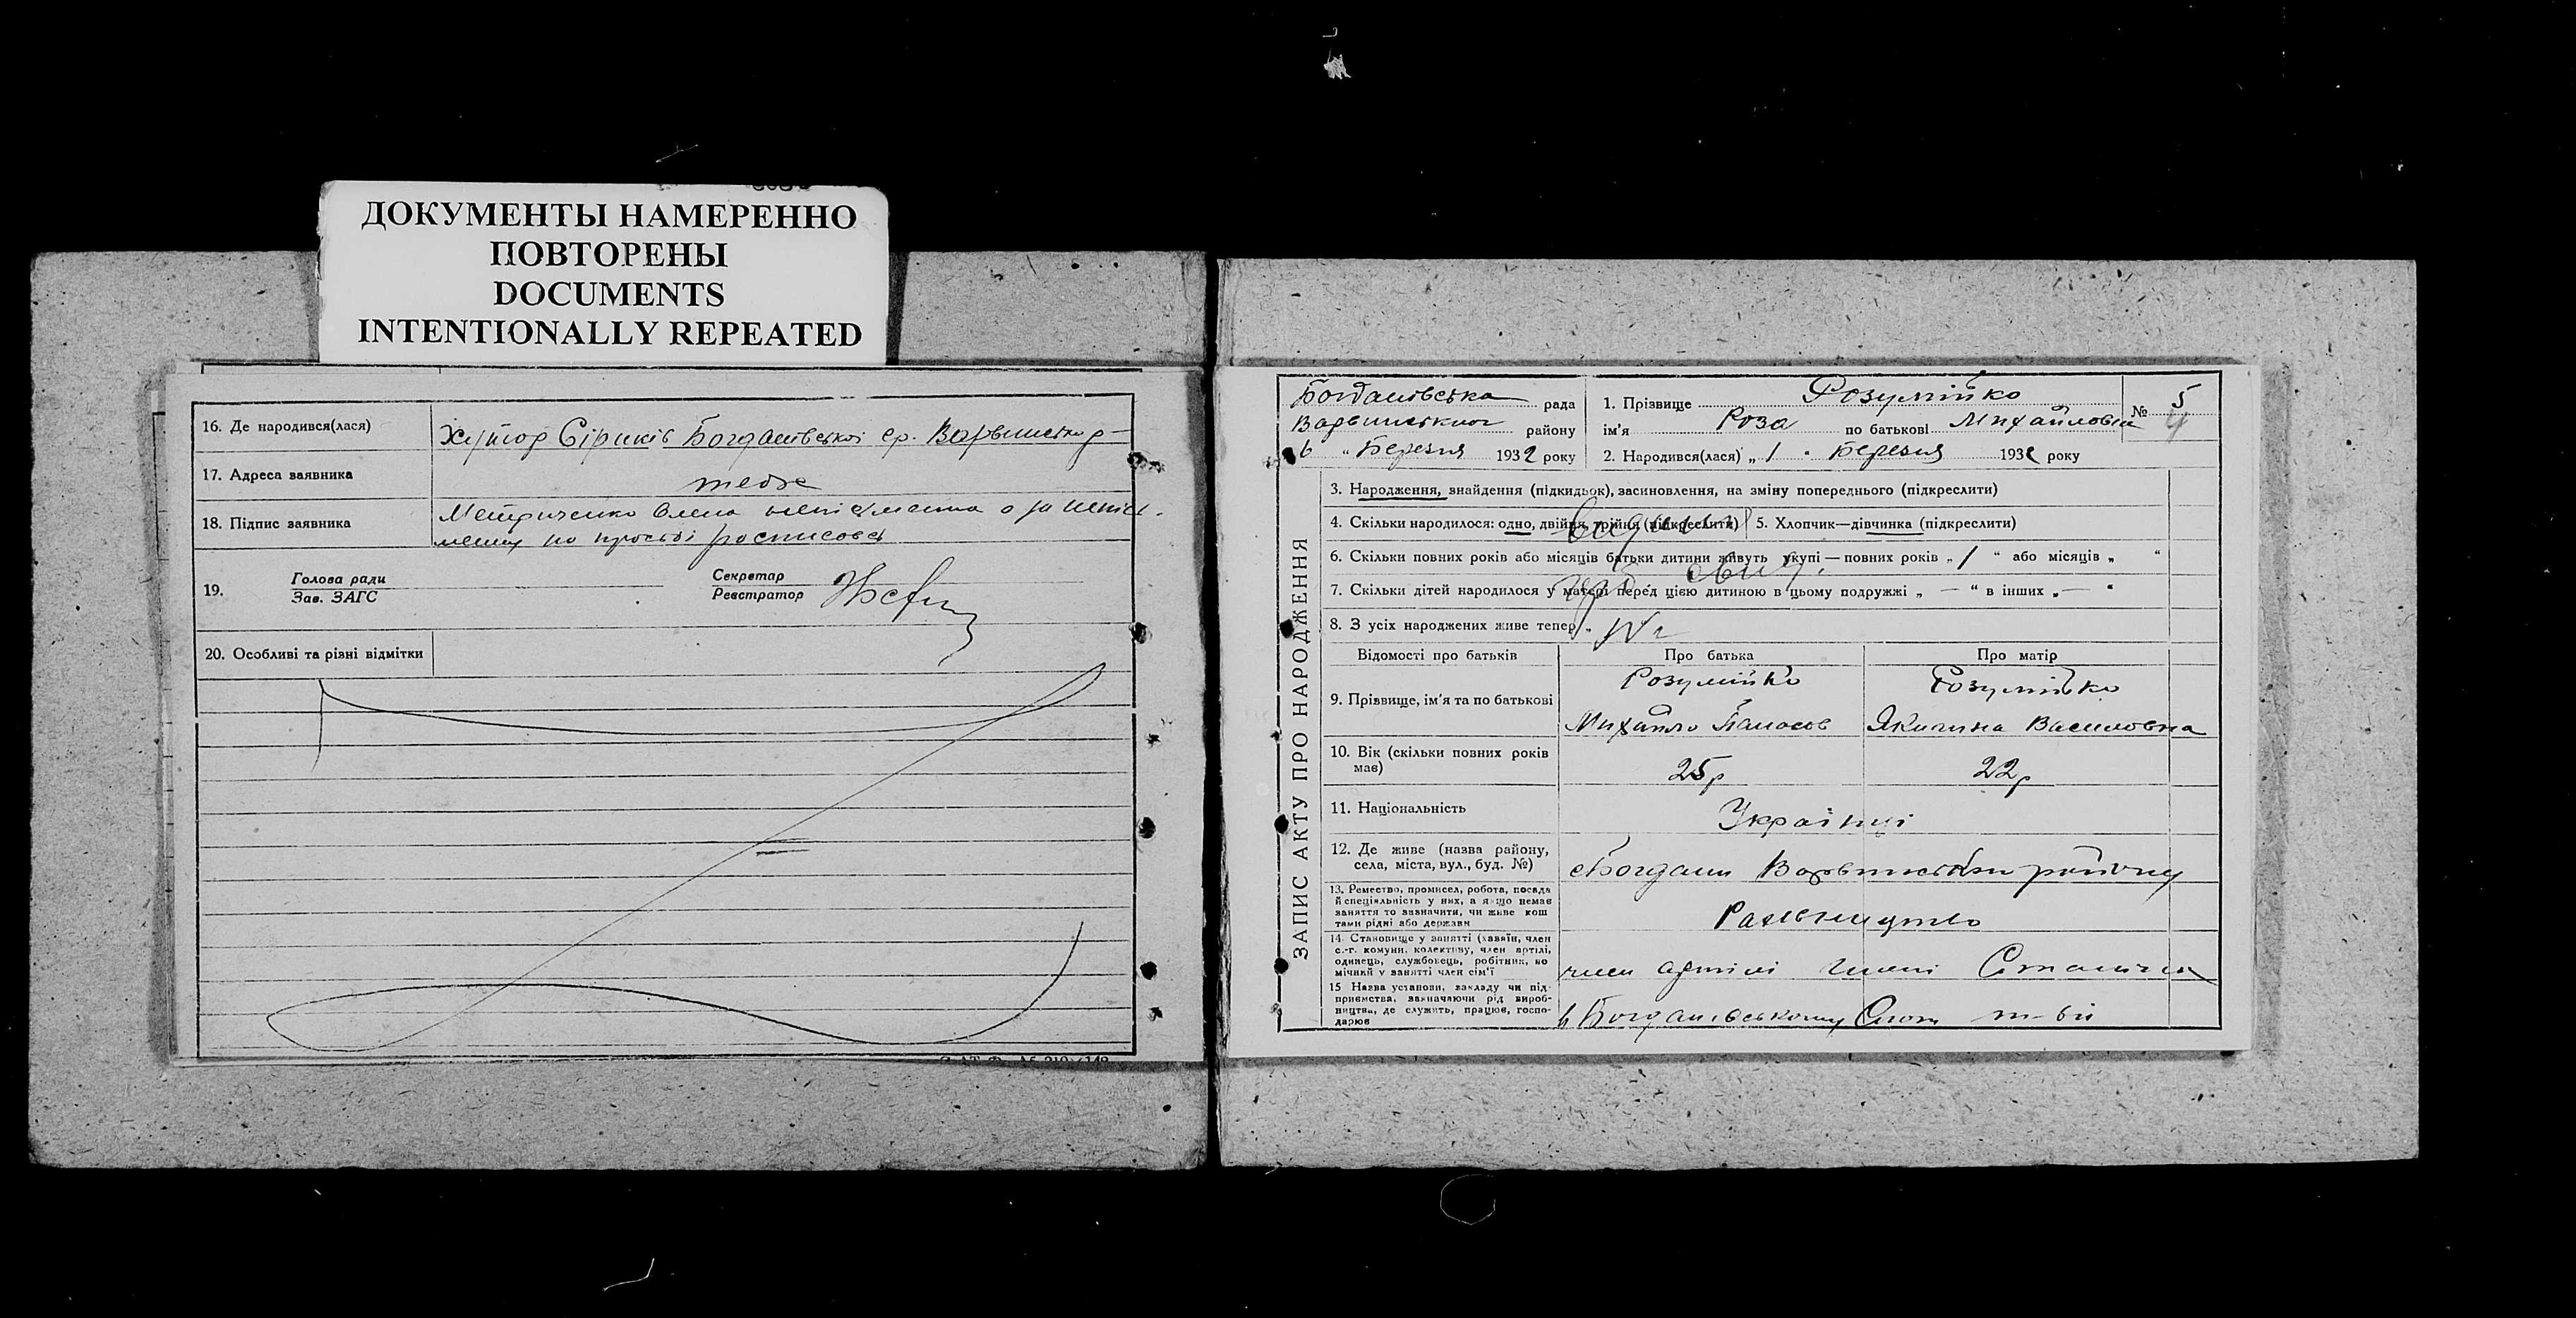 ДОКУМЕНТЫ НАМЕРЕННО
ПОВТОРЕНЫ
DOCUMENTS
INTENTIONALLY REPEATED
16. Де народився(лася) Хутор Сіриків Богданівської ср. Варвинськ р-
17. Адреса заявника теоже
18. Підпис заявника Метриченко Олена неписьменна а за неписьменну по просьбі росписався
19. Голова ради
Зав. ЗАГС
Секретар
Реєстратор
20. Особливі та різні відмітки
ЗАПИС АКТУ ПРО НАРОДЖЕННЯ
Богданівська рада
Варвинського району
6 „ Березня 1932 року
1. Прізвище Розумійко
ім'я Роза по батькові Михайловна
№ 5
2. Народився(лася) „ 1 " Березня 1932 року
3. Народження, знайдення (підкидьок), засиновлення, на зміну попереднього (підкреслити)
4. Скільки народилося: одно, двійня, трійня (підкреслити) 5. Хлопчик—дівчинка (підкреслити)
6. Скільки повних років або місяців батьки дитини живуть укупі — повних років „ 1 “ або місяців „ “
7. Скільки дітей народилося у матері перед цією дитиною в цьому подружжі „ — “ в інших „ — “
8. З усіх народжених живе тепер „
Відомості про батьків Про батька Про матір
9. Прізвище, ім'я та по батькові
Розумійко Розумійко
Михайло Панасов Якилина Василовна
10. Вік (скільки повних років має) 25р 22р
11. Національність Українці
12. Де живе (назва району, села, міста, вул., буд. №) с Богдани Варвинського району
13. Ремество, промисел, робота, посада й спеціяльність у них, а якщо немає заняття то зазначити, чи живе коштами рідні або держави
14. Становище у занятті (хазяїн, член с.-г. комуни, колективу, член артілі, одинець, службовець, робітник, помічний у занятті член сім'ї член артілі імені Сталіна
15 Назва установи, закладу чи підприємства, зазначаючи рід виробництва, де служить, працює, господарює в Богданівському